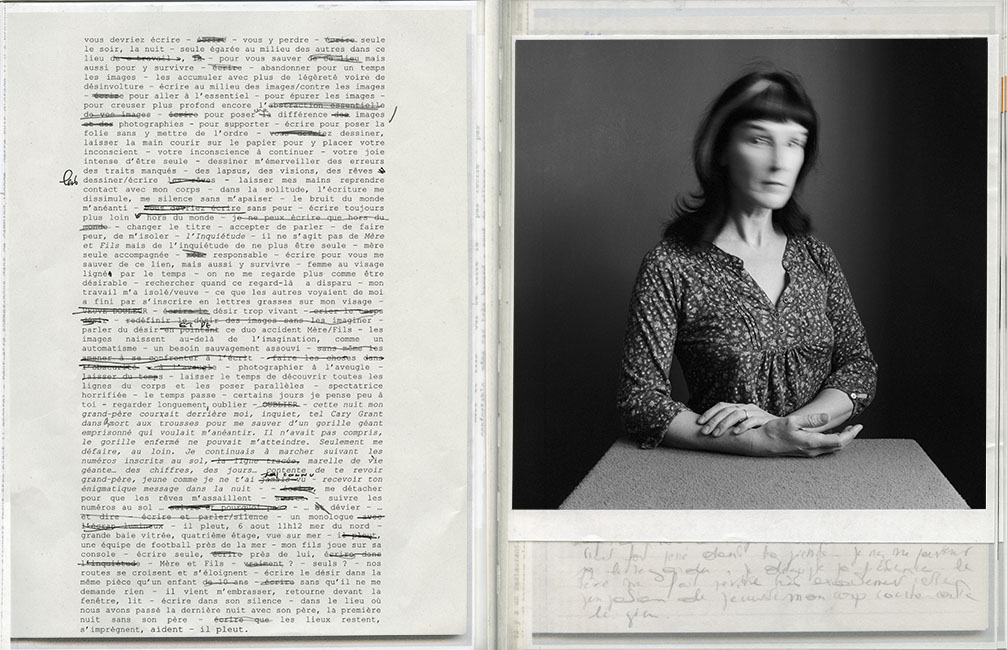 vous devriez écrire - écrire - vous y perdre - écrire seule
le soir, la nuit - seule égarée au milieu des autres dans ce
lieu de travail, là - pour vous sauver de ce lieu mais
aussi pour y survivre - écrire - abandonner pour un temps
les images - les accumuler avec plus de légèreté voire de
désinvolture - écrire au milieu des images/contre les images
- écrire pour aller à l'essentiel - pour épurer les images -
pour creuser plus profond encore l'abstraction essentielle
de vos images - écrire pour poser la différence des images
et des photographies - pour supporter - écrire pour poser la
folie sans y mettre de l'ordre - vous devriez dessiner,
laisser la main courir sur le papier pour y placer votre
inconscient - votre inconscience à continuer - votre joie
intense d'être seule - dessiner m'émerveiller des erreurs
des traits manqués - des lapsus, des visions, des rêves
dessiner/écrire les rêves - laisser mes mains reprendre
contact avec mon corps - dans la solitude, l'écriture me
dissimule, me silence sans m'apaiser - le bruit du monde
m'anéanti - vous devriez écrire sans peur - écrire toujours
plus loin - hors du monde - je ne peux écrire que hors du
monde - changer le titre - accepter de parler - de faire
peur, de m'isoler - l'Inquiétude - il ne s'agit pas de Mère
et Fils mais de l'inquiétude de ne plus être seule - mère
seule accompagnée - responsable - écrire pour vous me
sauver de ce lien, mais aussi y survivre - femme au visage
ligné par le temps - on ne me regarde plus comme être
désirable - rechercher quand ce regard-là a disparu - mon
travail m'a isolé/veuve - ce que les autres voyaient de moi
a fini par s'inscrire en lettres grasses sur mon visage -
VEUVE DOULEUR - écrire le désir trop vivant - crier le corps
- redéfinir le désir des images sans les imaginer -
parler du désir en pointant ce duo accident Mère/Fils - les
images naissent au-delà de l'imagination, comme un
automatisme - un besoin sauvagement assouvi - sans même les
amener à se confronter à l'écrit - faire les choses dans
l'obscurité - à l'aveugle - photographier à l'aveugle -
laisser du temps - laisser le temps de découvrir toutes les
lignes du corps et les poser parallèles - spectatrice
horrifiée - le temps passe - certains jours je pense peu à
toi - regarder longuement, oublier - OUBLIER - cette nuit mon
grand-père courait derrière moi, inquiet, tel Cary Grant
dans mort aux trousses pour me sauver d'un gorille géant
emprisonné qui voulait m'anéantir. Il n'avait pas compris,
le gorille enfermé ne pouvait m'atteindre. Seulement me
défaire, au loin. Je continuais à marcher suivant les
numéros inscrits au sol, la ligne tracée, marelle de vie
géante… des chiffres, des jours… contente de te revoir
grand-père, jeune comme je ne t'ai jamais vu - recevoir ton
énigmatique message dans la nuit - - écrire, me détacher
pour que les rêves m'assaillent - - suivre les
numéros au sol … suivre et pourquoi pas - … dévier - …
et dire - écrire et parler/silence - un monologue avec
l'écran lumineux - il pleut, 6 aout 11h12 mer du nord -
grande baie vitrée, quatrième étage, vue sur mer - il pleut,
une équipe de football près de la mer - mon fils joue sur sa
console - écrire seule, écrire près de lui, écrire dans
l'inquiétude - Mère et Fils - vraiment ? - seuls ? - nos
routes se croisent et s'éloignent - écrire le désir dans la
même pièce qu'un enfant de 10 ans - écrire sans qu'il ne me
demande rien - il vient m'embrasser, retourne devant la
fenêtre, lit - écrire dans son silence - dans le lieu où
nous avons passé la dernière nuit avec son père, la première
nuit sans son père - écrire que les lieux restent,
s'imprègnent, aident - il pleut.